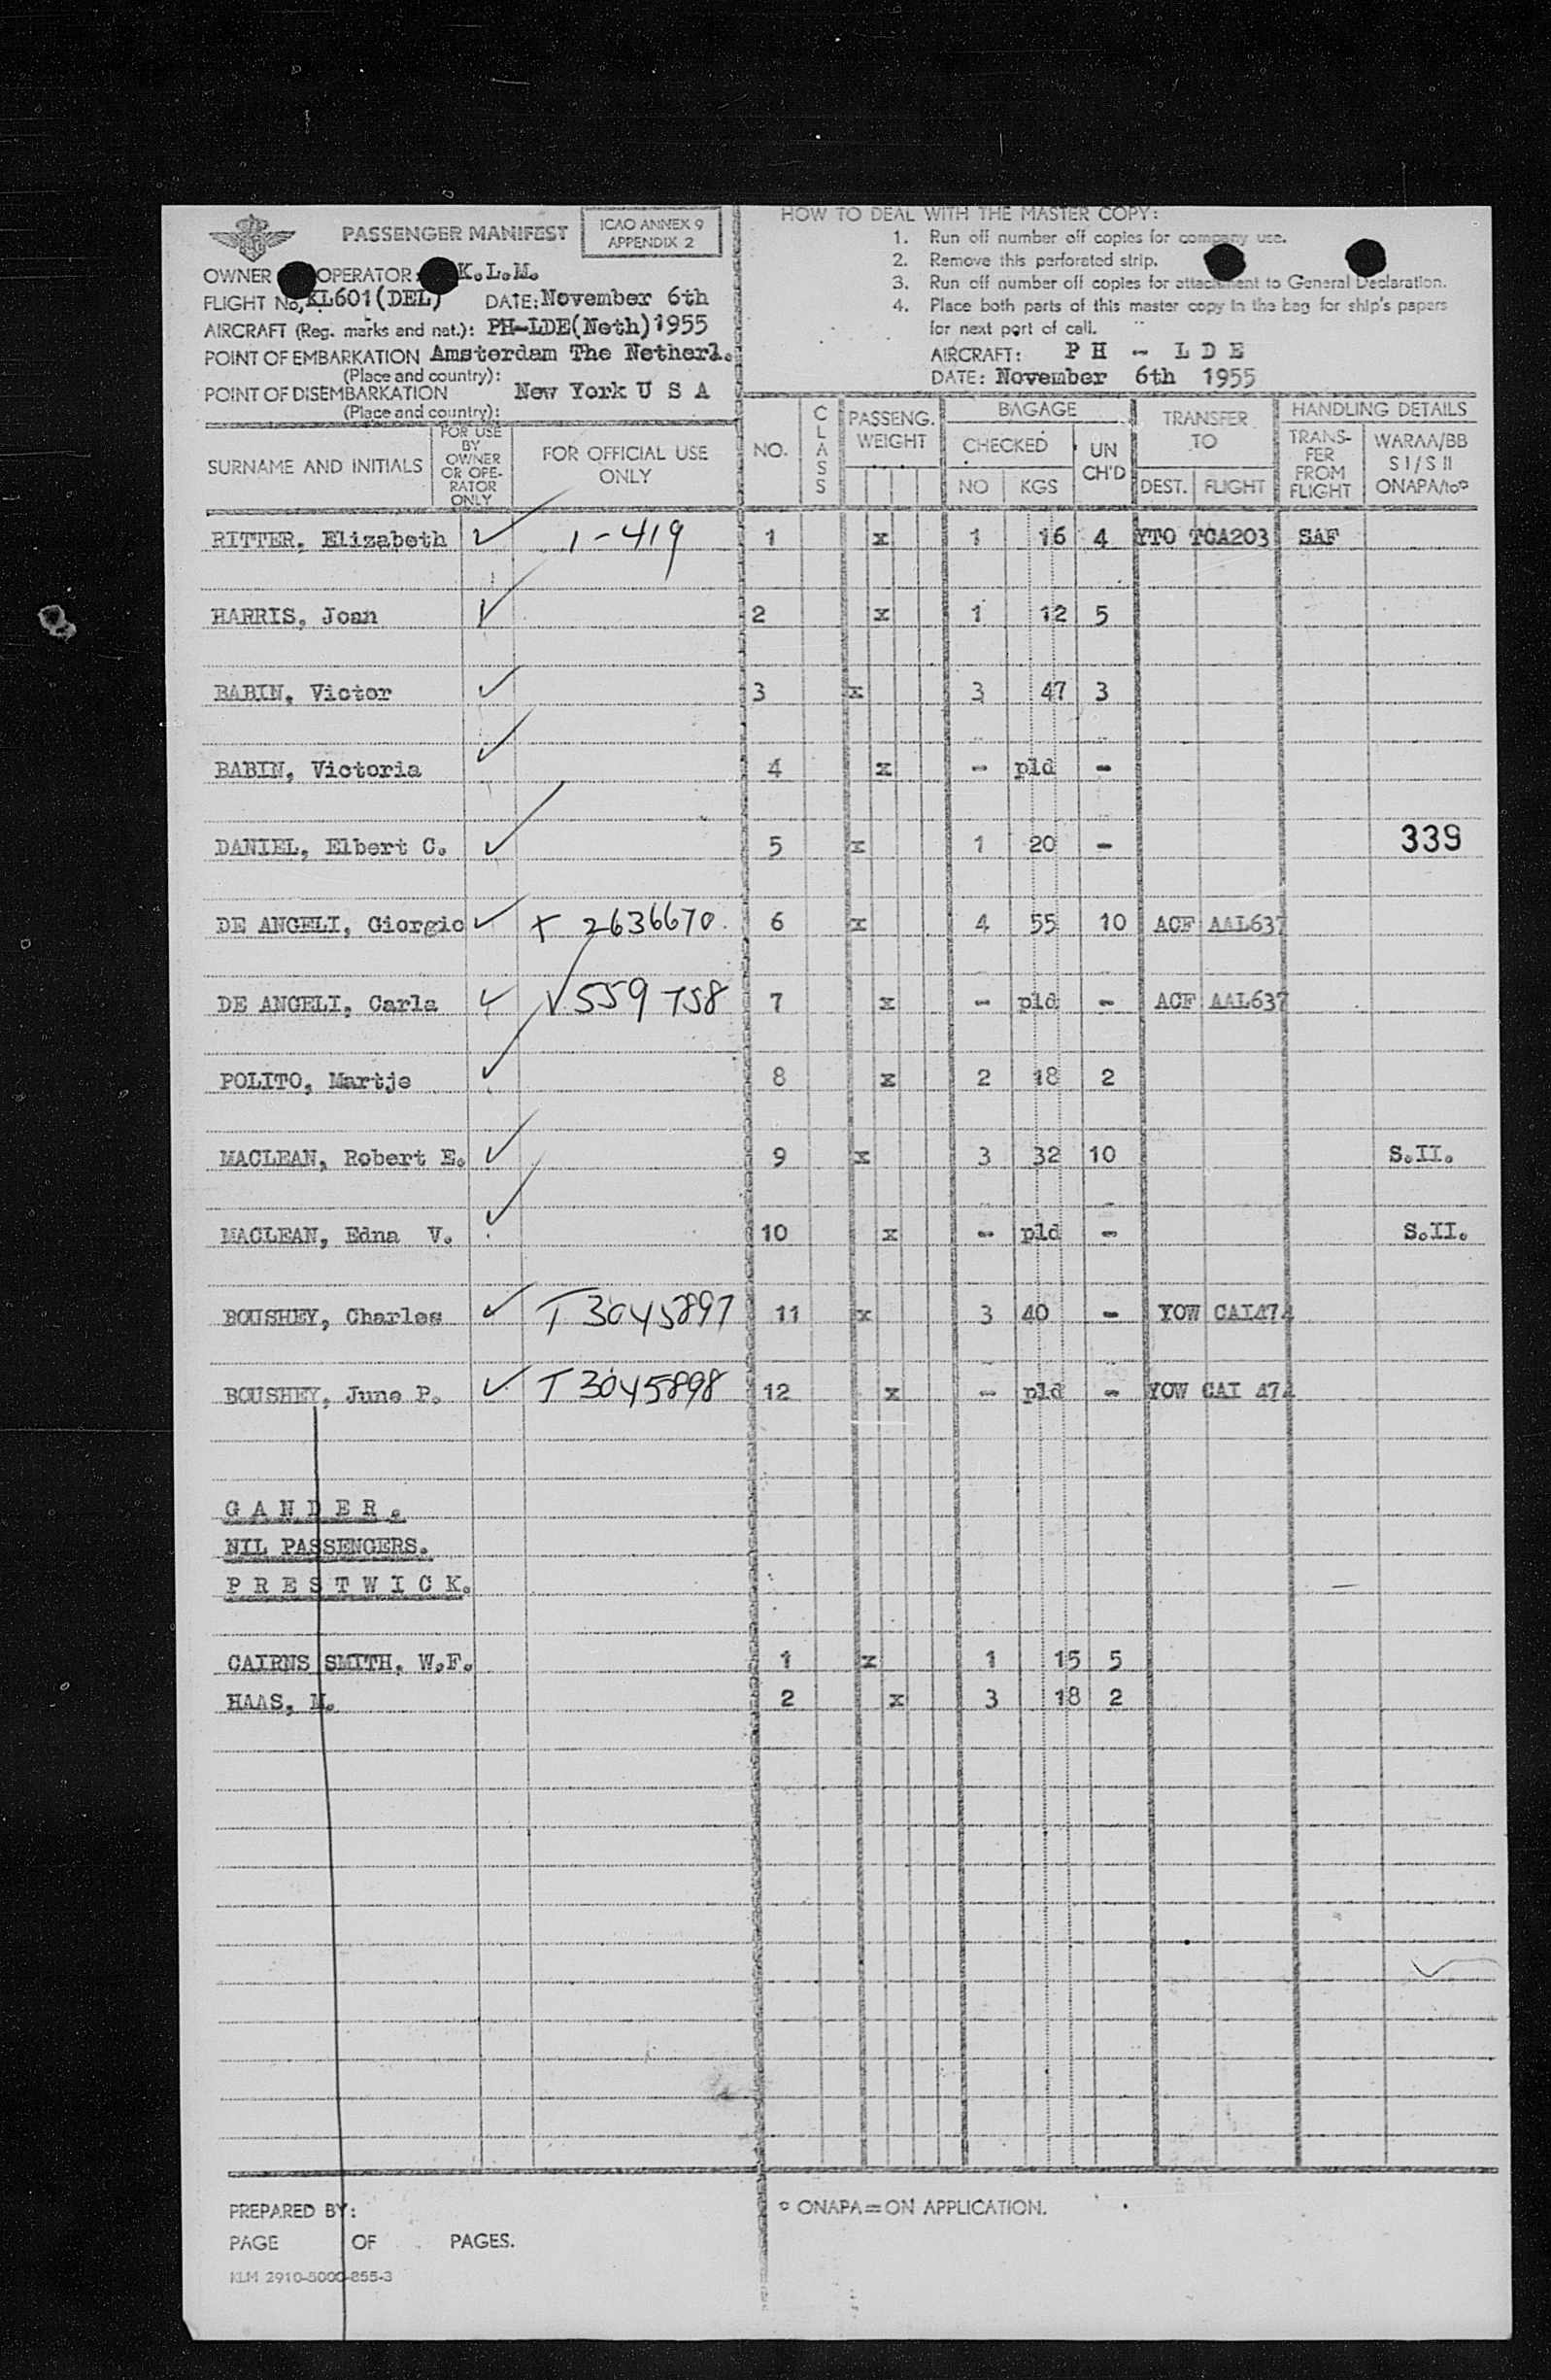 PASSENGER MANIFEST
ICAO ANNEX 9
APPENDIX 2
OWNER OPERATOR: K.L.M.
FLIGHT No. KL601(DEL) DATE: November 6th
AIRCRAFT (Reg. marks and nat.): PH-LDE(Neth)1955
POINT OF EMBARKATION Amsterdam The Netherl.
(Place and country):
POINT OF DISEMBARKATION New York U S A
(Place and country):
HOW TO DEAL WITH THE MASTER COPY:
1. Run off number off copies for company use.
2. Remove this perforated strip.
3. Run off number off copies for attachment to General Declaration.
4. Place both parts of this master copy in the bag for ship's papers
for next port of call.
AIRCRAFT: P H - L D E
DATE: November 6th 1955
SURNAME AND INITIALS
FOR USE
BY
OWNER
OR OPE-
RATOR
ONLY
FOR OFFICIAL USE
ONLY
NO.
CLASS
PASSENG.
WEIGHT
BAGAGE
CHECKED
NO KGS
UN
CH'D
TRANSFER
TO
DEST. FLIGHT
HANDLING DETAILS
TRANS-
FER
FROM
FLIGHT
WARAA/BB
S I / S II
ONAPA/to°
RITTER, Elizabeth ✓ 1-419 1 x 1 16 4 YTO TCA203 SAF
HARRIS, Joan ✓ 2 x 1 12 5
BABIN, Victor ✓ 3 x 3 47 3
BABIN, Victoria ✓ 4 x - pld -
DANIEL, Elbert C. ✓ 5 x 1 20 - 339
DE ANGELI, Giorgio ✓ + 2636670 6 x 4 55 10 ACF AAL637
DE ANGELI, Carla ✓ V 559 758 7 x - pld - ACF AAL637
POLITO, Martje ✓ 8 x 2 18 2
MACLEAN, Robert E. ✓ 9 x 3 32 10 S.II.
MACLEAN, Edna V. ✓ 10 x - pld - S.II.
BOUSHEY, Charles ✓ T 3045897 11 x 3 40 - YOW CAI474
BOUSHEY, June P. ✓ T 3045898 12 x - pld - YOW CAI 474
G A N D E R .
NIL PASSENGERS.
P R E S T W I C K.
CAIRNS SMITH, W.F. 1 x 1 15 5
HAAS, M. 2 x 3 18 2
PREPARED BY:
PAGE OF PAGES.
KLM 2910-5000-855-3
° ONAPA = ON APPLICATION.